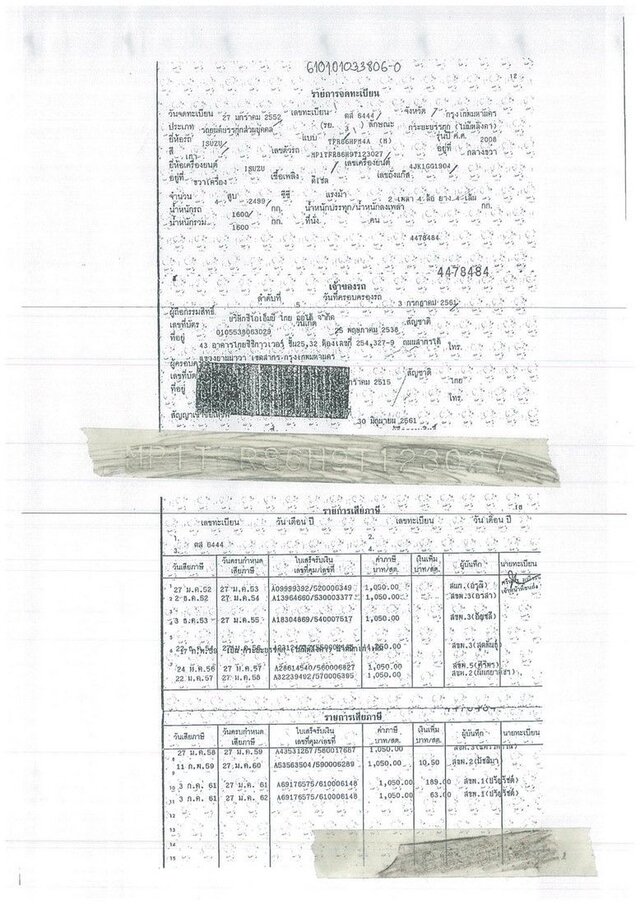 610101033806-0
12
รายการจดทะเบียน
วันจดทะเบียน 27 มกราคม 2552 เลขทะเบียน ตส 6444 จังหวัด กรุงเทพมหานคร
ประเภท รถยนต์บรรทุกส่วนบุคคล (รย. 3) ลักษณะ กระบะบรรทุก (ไม่มีหลังคา)
ยี่ห้อรถ ISUZU แบบ TFR86HPM4A (M) รุ่นปี ค.ศ. 2008
สี เทา เลขตัวรถ MP1TFR86H9T123027 อยู่ที่ กลางขวา
ยี่ห้อเครื่องยนต์ ISUZU เลขเครื่องยนต์ 4JK1GG1904
อยู่ที่ ขวาเครื่อง เชื้อเพลิง ดีเซล เลขถังแก๊ส
จำนวน 4 สูบ 2499 ซีซี แรงม้า 2 เพลา 4 ล้อ ยาง 4 เส้น
น้ำหนักรถ 1600 กก. น้ำหนักบรรทุก/น้ำหนักลงเพลา กก.
น้ำหนักรวม 1600 กก. ที่นั่ง คน
4478484
4478484
เจ้าของรถ
ลำดับที่ 5 วันที่ครอบครองรถ 3 กรกฎาคม 2561
ผู้ถือกรรมสิทธิ์ จำกัด
เลขที่บัตร 0105538063029 วันเกิด 25 พฤษภาคม 2538 สัญชาติ
ที่อยู่ 43 อาคารไทยซีซีทาวเวอร์ ชั้น25,32 ห้องเลขที่ 254,327-9 ถนนสาทรใต้ โทร.
แขวงยานนาวา เขตสาทร กรุงเทพมหานคร
ผู้ครอบครอง
เลขที่บัตร 2515 สัญชาติ ไทย
ที่อยู่ โทร.
สัญญาเช่าซื้อเลขที่ 30 มิถุนายน 2561
18
รายการเสียภาษี
เลขทะเบียน วัน เดือน ปี เลขทะเบียน วัน เดือน ปี
1. 2.
3. ตส 6444 4.
วันเสียภาษี วันครบกำหนดเสียภาษี ใบเสร็จรับเงิน เล่มที่คุม/เลขที่ ค่าภาษี บาท/สต. เงินเพิ่ม บาท/สต. ผู้บันทึก นายทะเบียน
27 ม.ค.52 27 ม.ค.53 A09999392/520006349 1,050.00
2 ธ.ค.52 27 ม.ค.54 A13964660/530003377 1,050.00
3 ธ.ค.53 27 ม.ค.55 A18304869/540007517 1,050.00
24 ม.ค.56 27 ม.ค.57 A28614540/560006827 1,050.00
22 ม.ค.57 27 ม.ค.58 A32239492/570006395 1,050.00
รายการเสียภาษี
วันเสียภาษี วันครบกำหนดเสียภาษี ใบเสร็จรับเงิน เล่มที่คุม/เลขที่ ค่าภาษี บาท/สต. เงินเพิ่ม บาท/สต. ผู้บันทึก นายทะเบียน
27 ม.ค.58 27 ม.ค.59 A43531287/580017687 1,050.00
11 ก.พ.59 27 ม.ค.60 A53563504/590006289 1,050.00 10.50
10 3 ก.ค. 61 27 ม.ค. 61 A69176575/610006148 1,050.00 189.00
11 3 ก.ค. 61 27 ม.ค. 62 A69176575/610006148 1,050.00 63.00
12
13
14
15